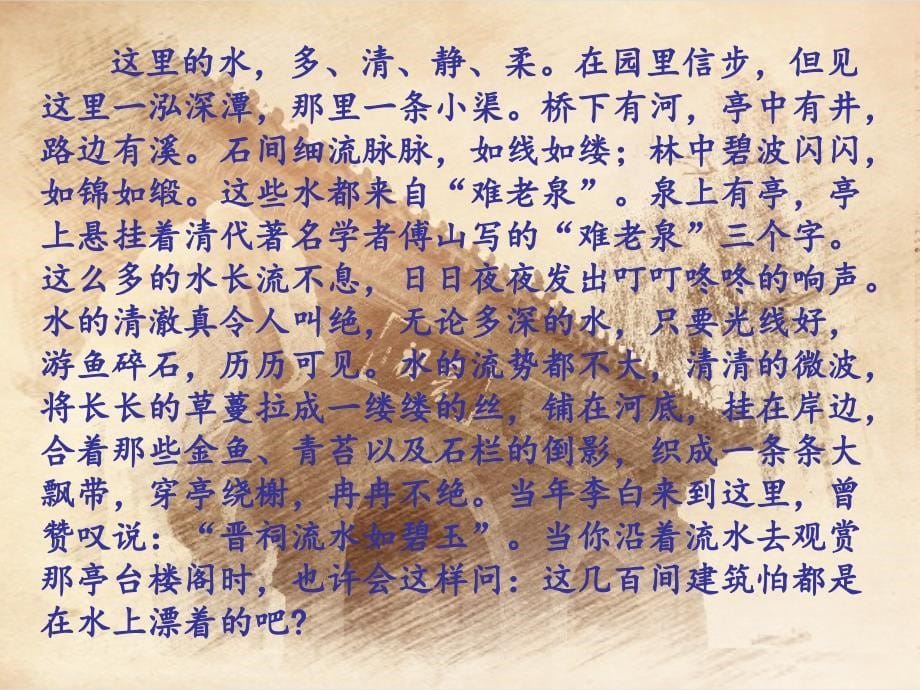 这里的水，多、清、静、柔。在园里信步，但见
这里一泓深潭，那里一条小渠。桥下有河，亭中有井，
路边有溪。石间细流脉脉，如线如缕；林中碧波闪闪，
如锦如缎。这些水都来自“难老泉”。泉上有亭，亭
上悬挂着清代著名学者傅山写的“难老泉”三个字。
这么多的水长流不息，日日夜夜发出叮叮咚咚的响声。
水的清澈真令人叫绝，无论多深的水，只要光线好，
游鱼碎石，历历可见。水的流势都不大，清清的微波，
将长长的草蔓拉成一缕缕的丝，铺在河底，挂在岸边，
合着那些金鱼、青苔以及石栏的倒影，织成一条条大
飘带，穿亭绕榭，冉冉不绝。当年李白来到这里，曾
赞叹说：“晋祠流水如碧玉”。当你沿着流水去观赏
那亭台楼阁时，也许会这样问：这几百间建筑怕都是
在水上漂着的吧?